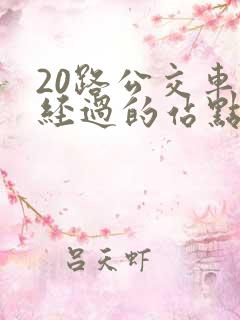 20路公交車
經過的佔點
吕天虾